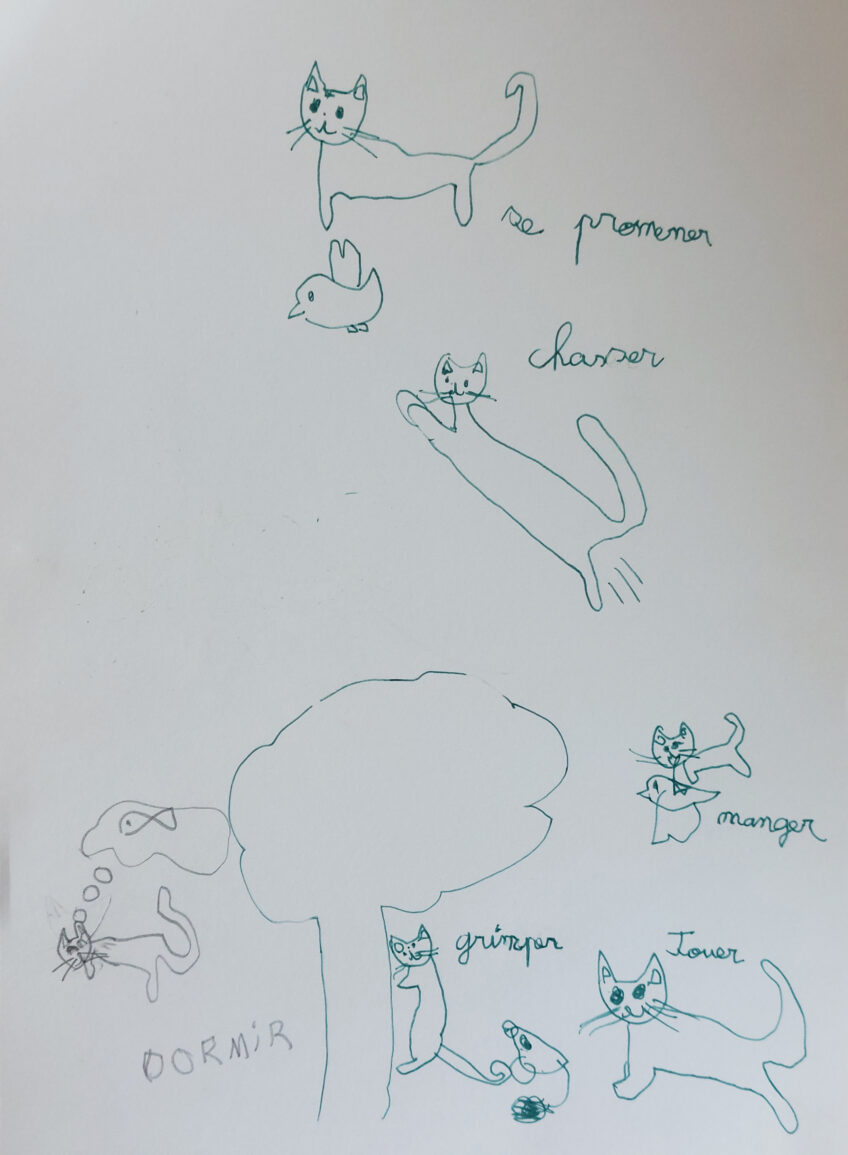 se promener
chasser
manger
grimper
Jouer
DORMiR